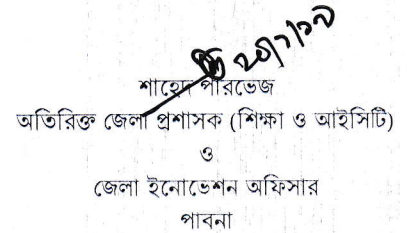 শাহেদ পারভেজ
অতিরিক্ত জেলা প্রশাসক (শিক্ষা ও আইসিটি)
ও
জেলা ইনোভেশন অফিসার
পাবনা